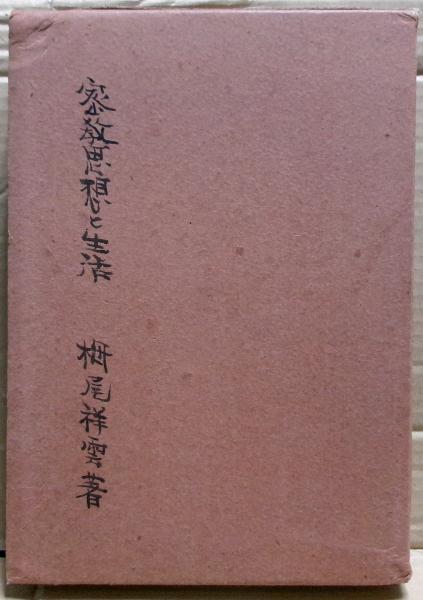 密教思想と生活 栂尾祥雲著